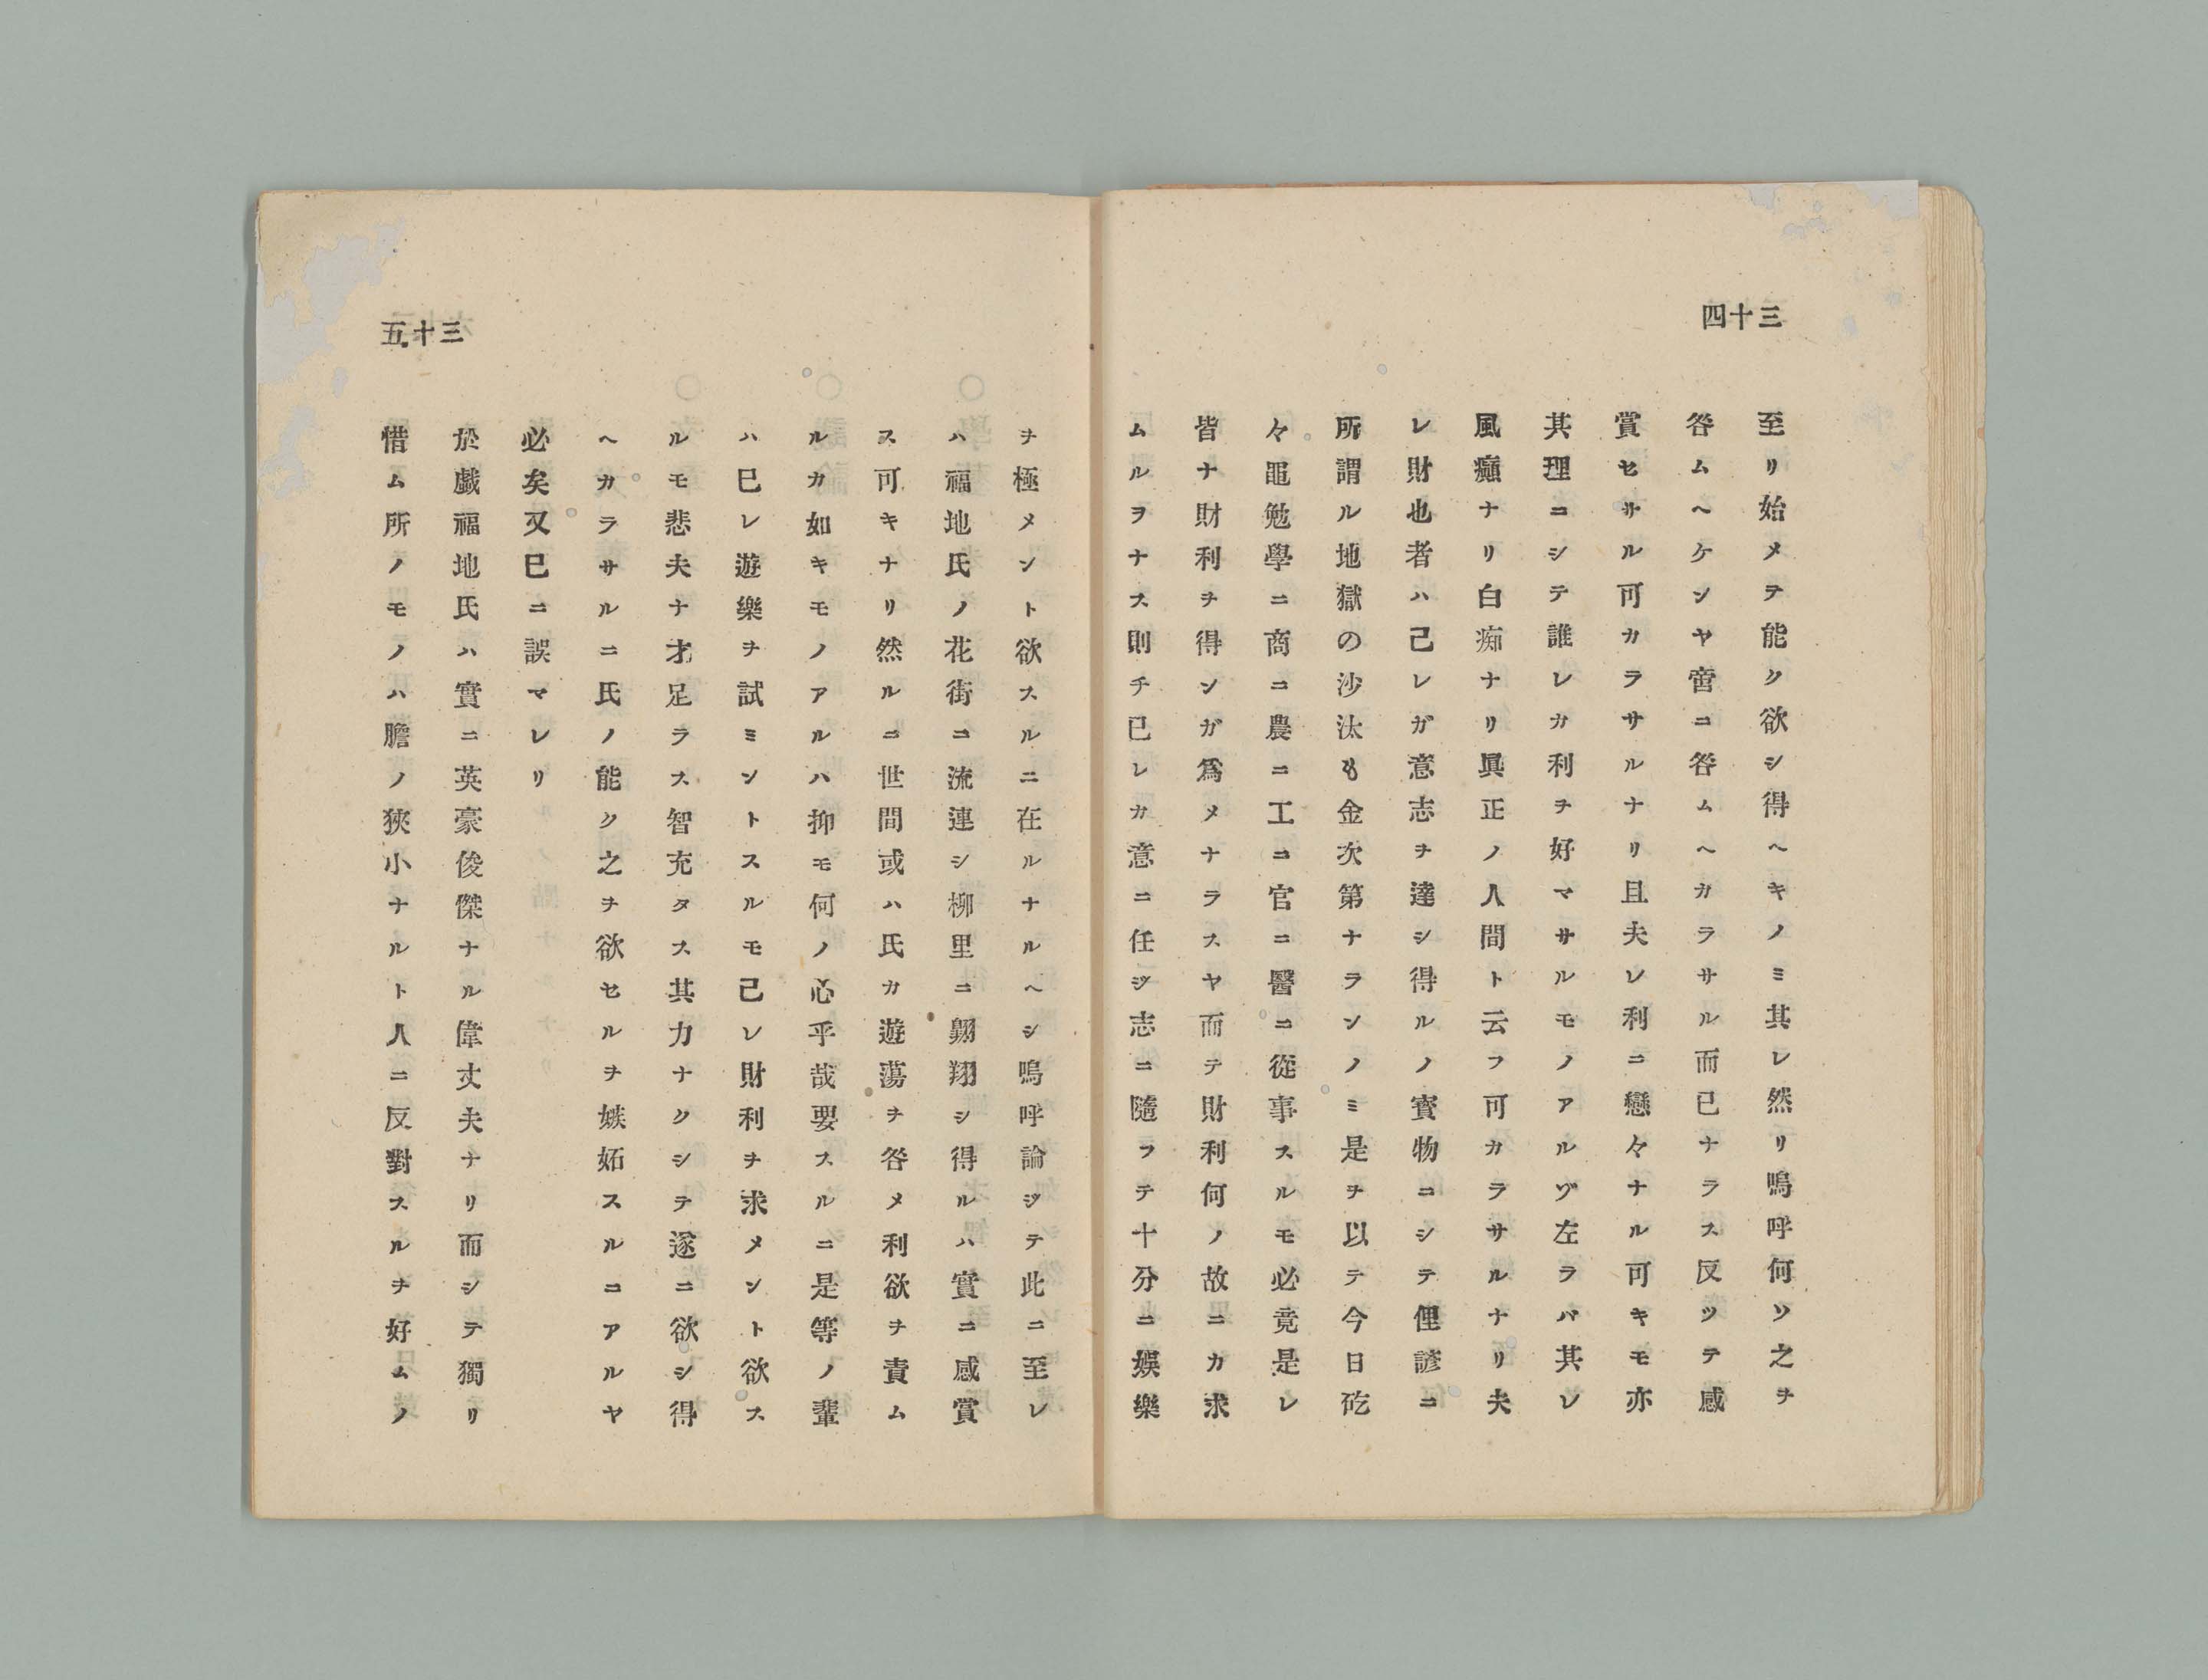 四十三
至リ始メテ能ク欲シ得ヘキノミ其レ然リ嗚呼何ソ之ヲ
咎ムヘケンヤ啻ニ咎ムヘカラサル而已ナラス反ツテ感
賞セサル可カラサルナリ且夫レ利ニ戀々ナル可キモ亦
其理ニシテ誰レカ利ヲ好マサルモノアルゾ左ラバ其レ
風癲ナリ白痴ナリ眞正ノ人間ト云フ可カラサルナリ夫
レ財也者ハ己レガ意志ヲ達シ得ルノ寳物ニシテ俚諺ニ
所謂ル地獄の沙汰も金次第ナランノミ是ヲ以テ今日矻
々黽勉學ニ商ニ農ニ工ニ官ニ醫ニ從事スルモ必竟是レ
皆ナ財利ヲ得ンガ爲メナラスヤ而テ財利何ノ故ニカ求
ムルヲナス則チ已レカ意ニ任ジ志ニ隨フテ十分ニ娛樂
五十三
ヲ極メント欲スルニ在ルナルヘシ嗚呼論ジテ此ニ至レ
ハ福地氏ノ花街ニ流連シ柳里ニ翺翔シ得ルハ實ニ感賞
ス可キナリ然ルニ世間或ハ氏カ遊蕩ヲ咎メ利欲ヲ責ム
ルカ如キモノアルハ抑モ何ノ心乎哉要スルニ是等ノ輩
ハ巳レ遊樂ヲ試ミントスルモ己レ財利ヲ求メント欲ス
ルモ悲夫ナ才足ラス智充タス其力ナクシテ遂ニ欲シ得
ヘカラサルニ氏ノ能ク之ヲ欲セルヲ嫉妬スルコアルヤ
必矣又巳ニ誤マレリ
於戯福地氏ハ實ニ英豪俊傑ナル偉丈夫ナリ而シテ獨リ
惜ム所ノモノハ膽ノ狹小ナルト人ニ反對スルヲ好ムノ